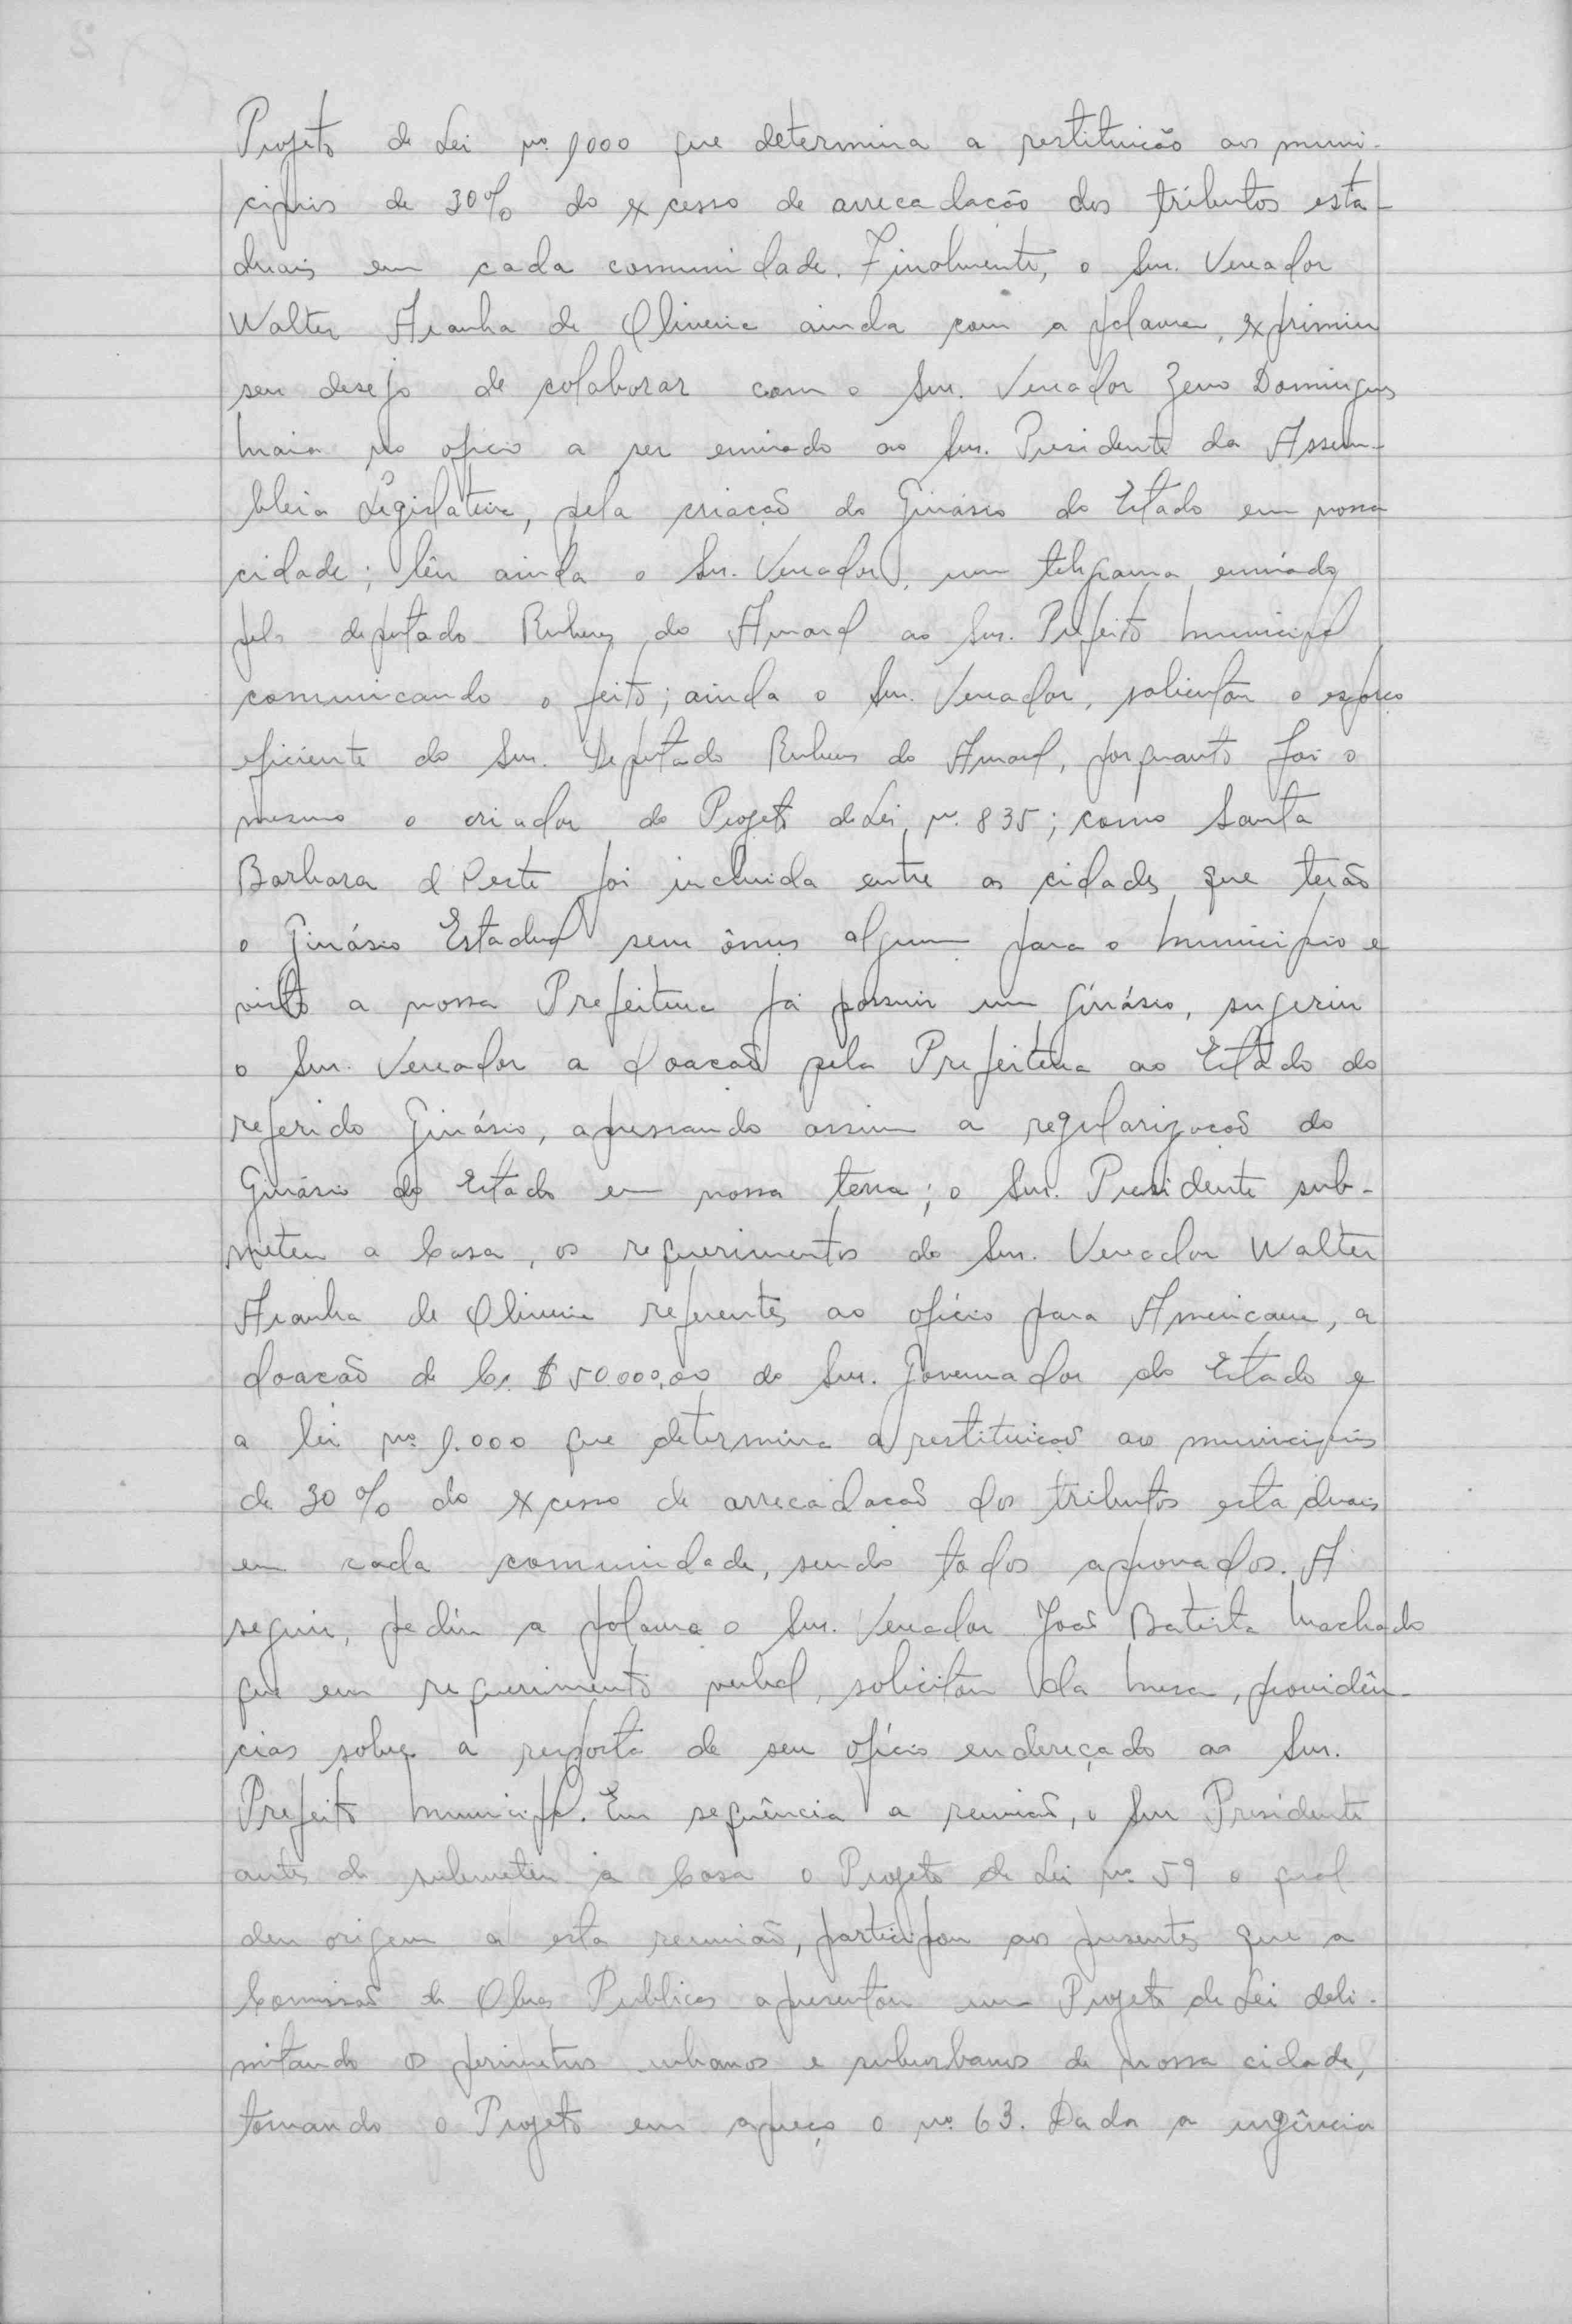 Projeto de Lei nº 1000 que determina a restituicão aos muni-
cipios de 30% do excesso de arrecadacão dos tributos esta-
duais em cada comunidade. Finalmente, o Snr. Vereador
Walter Aranha de Oliveira ainda com a palavra, exprimiu
seu desejo de colaborar com o Snr. Vereador Zeno Domingues
Maia no oficio a ser enviado ao Snr. Presidente da Assem-
bleia Legislativa, pela criacaõ do Ginásio do Estado em nossa
cidade; lêu ainda o Snr. Vereador, um telegrama enviado
pelo deputado Rubens do Amaral ao Snr. Prefeito Municipal
comunicando o feito; ainda o Snr. Vereador, salientou o esforco
eficiente do Snr. Deputado Rubens do Amaral, porquanto foi o
mesmo o criador do Projeto de Lei nº 835; como Santa
Barbara d'Oeste foi incluida entre as cidades que terão
o Ginásio Estadual sem ônus algum para o Municipio e
visto a nossa Prefeitura já possuir um Ginásio, sugeriu
o Snr. Vereador a doacaõ pela Prefeitura ao Estado do
referido Ginásio, apressando assim a regularizacaõ do
Ginásio do Estado em nossa terra; o Snr. Presidente sub-
meteu a Casa, os requerimentos do Snr. Vereador Walter
Aranha de Oliveira referentes ao ofício para Americana, a
doacaõ de Cr. $ 50.000,00 do Snr. Governador do Estado e
a lei nº 1.000 que determina a restituicaõ aos municipios
de 30% do excesso de arrecadacaõ dos tributos estaduais
em cada comunidade, sendo todos aprovados. A
seguir, pediu a palavra o Snr. Vereador Joaõ Batista Machado
que em requerimento verbal, solicitou da Mesa, providên-
cias sobre a resposta de seu ofício endereçado ao Snr.
Prefeito Municipal. Em sequência a reuniaõ, o Snr Presidente
antes de submeter à Casa o Projeto de Lei nº 59 o qual
deu origem a esta reuniaõ, participou aos presentes que a
Comissaõ de Obras Publicas apresentou um Projeto de Lei deli-
mitando os perimetros urbanos e suburbanos de nossa cidade,
tomando o Projeto em apreço o nº 63. Dada a urgência